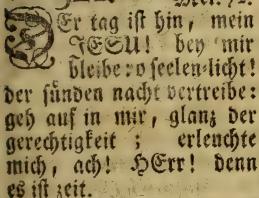 Mel. 72.
DEr tag ist hin, mein
JESU! bey mir
bleibe: o seelen-licht!
der sünden nacht vertreibe:
geh auf in mir, glanz der
gerechtigkeit; erleuchte
mich, ach! HErr! denn
es ist zeit.